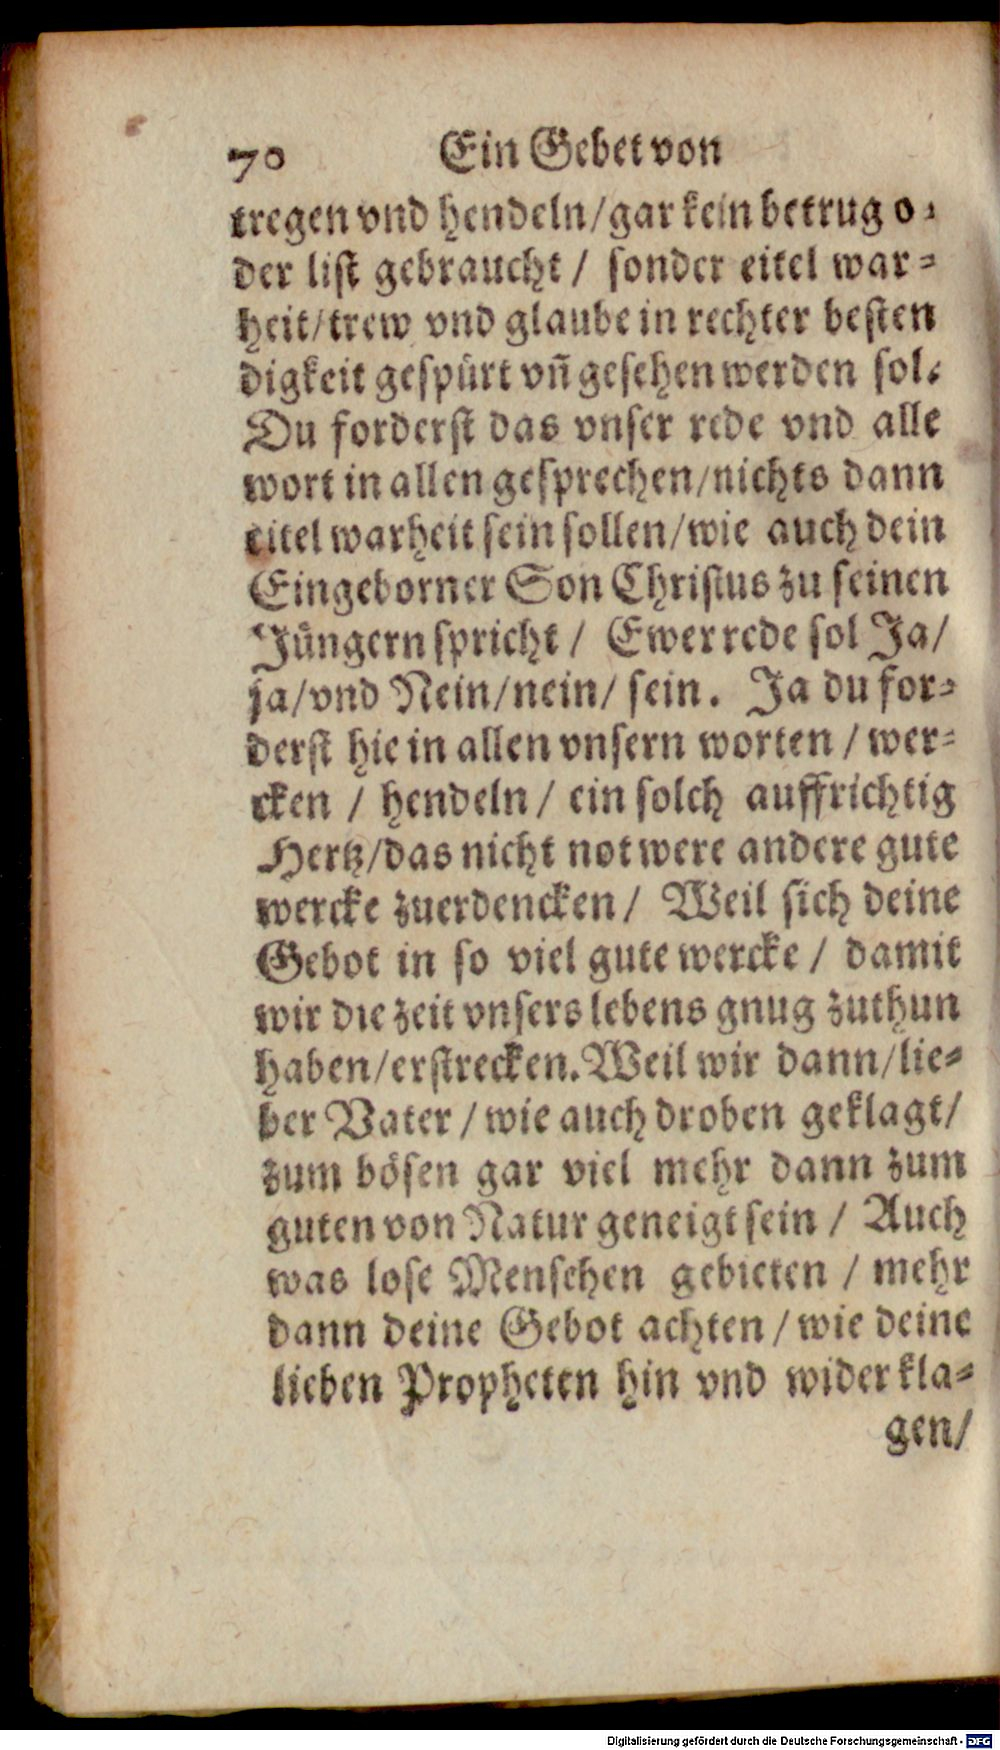 70 Ein Gebet von
tregen vnd hendeln/gar kein betrug o-
der list gebraucht / sonder eitel war-
heit/trew vnd glaube in rechter besten
digkeit gespürt vñ gesehen werden sol.
Du forderst das vnser rede vnd alle
wort in allen gesprechen/nichts dann
eitel warheit sein sollen/wie auch dein
Eingeborner Son Christus zu seinen
Jüngern spricht / Ewer rede sol Ja/
ja/vnd Nein/nein/ sein. Ja du for-
derst hie in allen vnsern worten / wer-
cken / hendeln / ein solch auffrichtig
Hertz/das nicht not were andere gute
wercke zuerdencken / Weil sich deine
Gebot in so viel gute wercke / damit
wir die zeit vnsers lebens gnug zuthun
haben/erstrecken. Weil wir dann/lie-
ber Vater / wie auch droben geklagt/
zum bösen gar viel mehr dann zum
guten von Natur geneigt sein / Auch
was lose Menschen gebieten / mehr
dann deine Gebot achten / wie deine
lieben Propheten hin vnd wider kla-
gen/
Digitalisierung gefördert durch die Deutsche Forschungsgemeinschaft - DFG